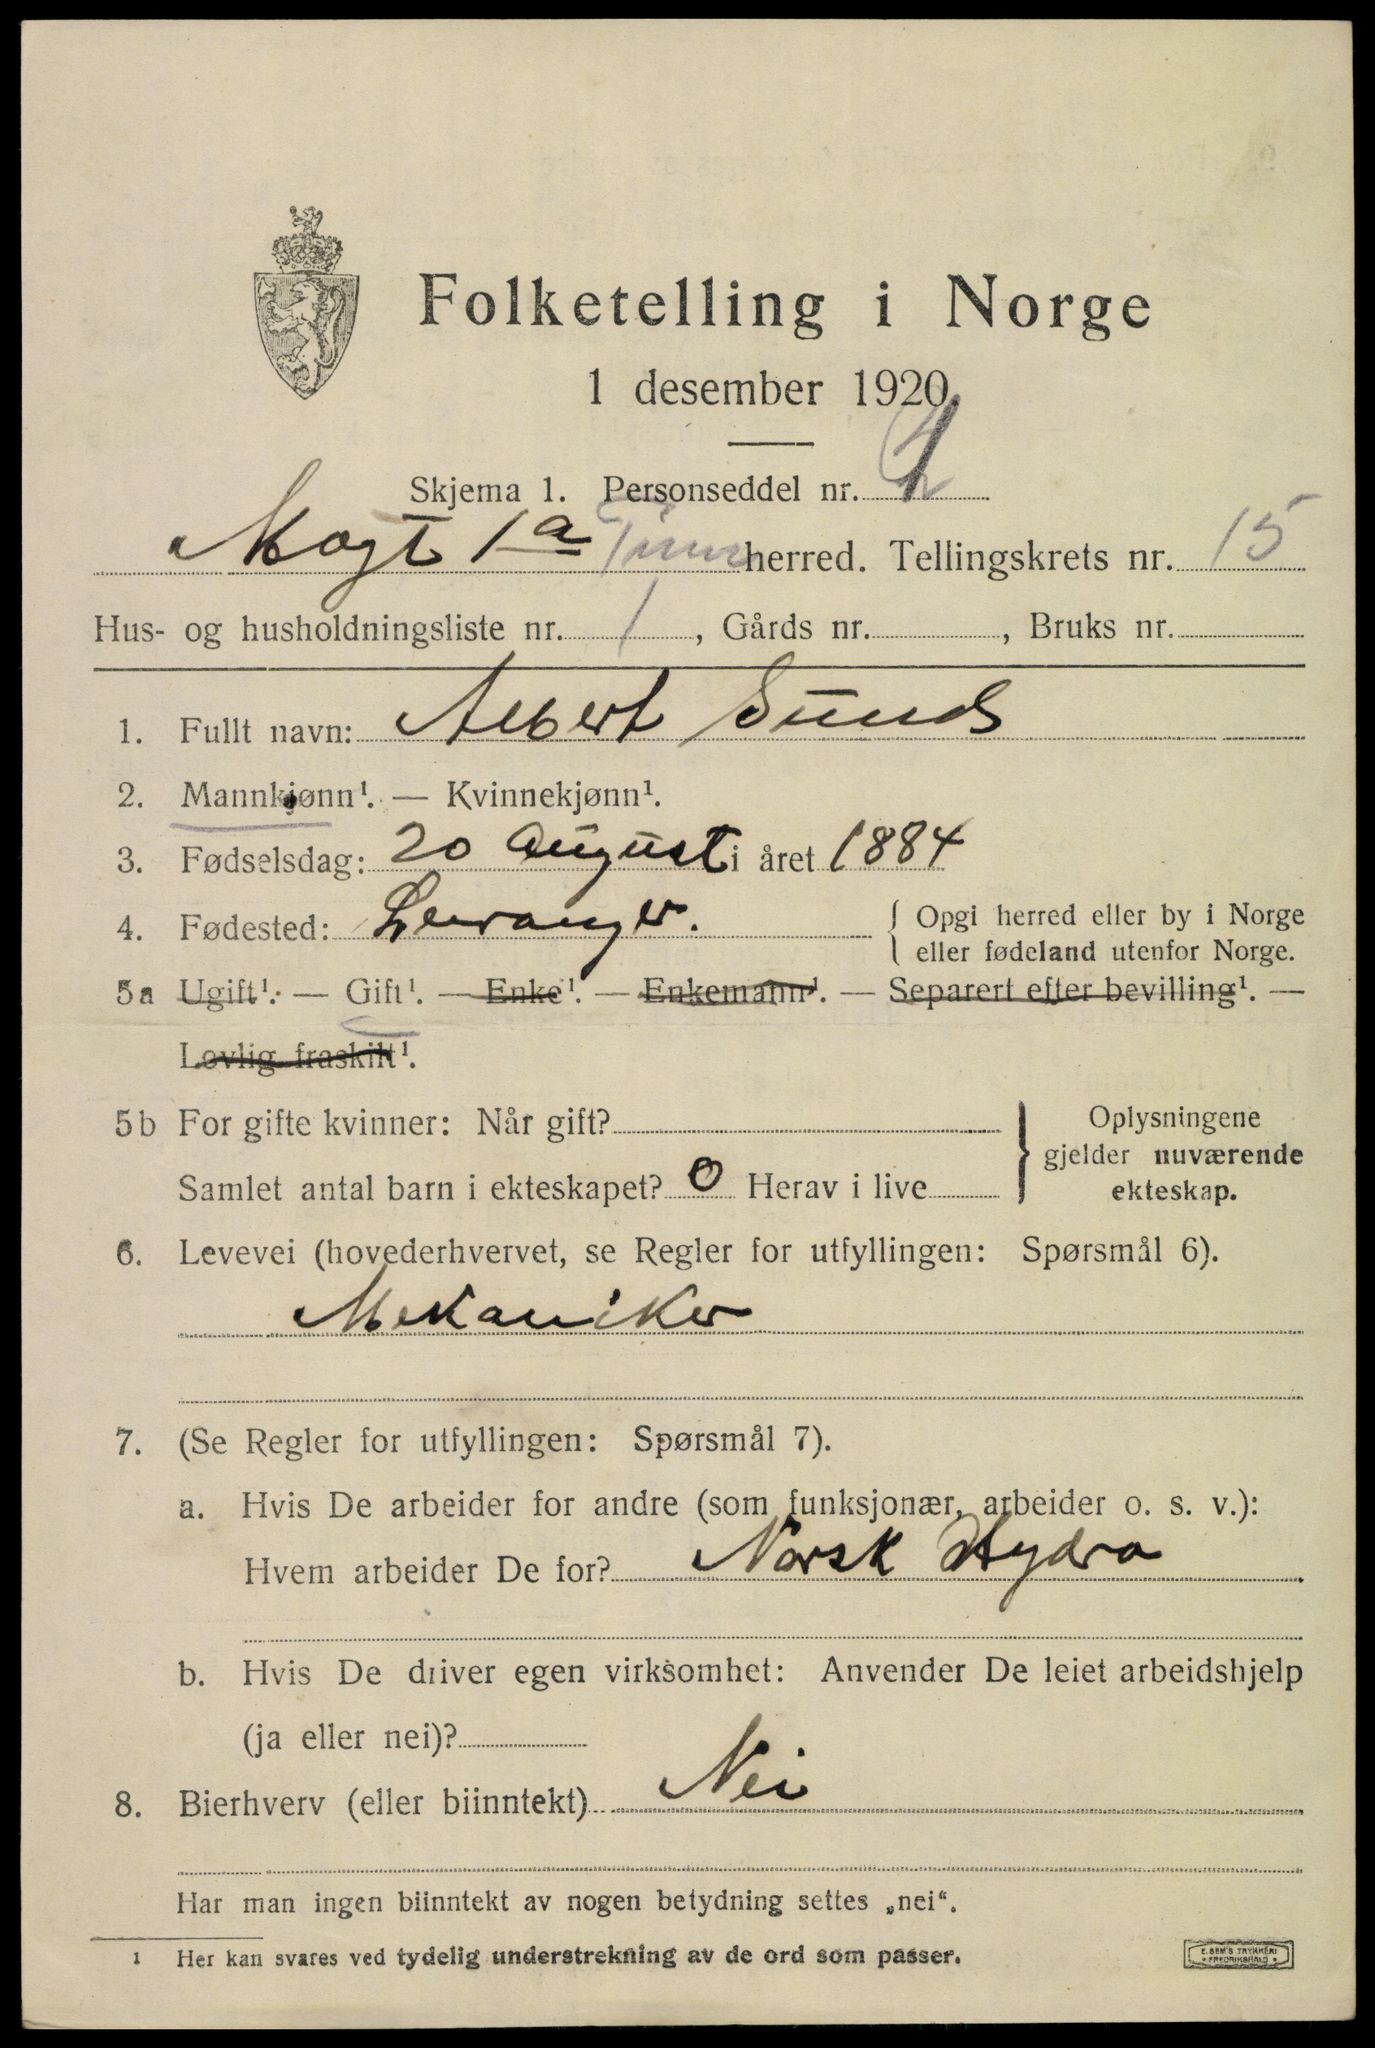 Folketelling i Norge
1 desember 1920.
Skjema 1. Personseddel nr. 1
Møgt 1a Tinn herred. Tellingskrets nr. 15
Hus- og husholdningsliste nr. 1, Gårds nr. , Bruks nr.
1. Fullt navn: Albert Sund
2. Mannkjønn¹. — Kvinnekjønn¹.
3. Fødselsdag: 20 August i året 1884
4. Fødested: Levanger. { Opgi herred eller by i Norge
eller fødeland utenfor Norge.
5a Ugift¹. — Gift¹. — Enke¹. — Enkemann¹. — Separert efter bevilling¹. —
Lovlig fraskilt¹.
5b For gifte kvinner: Når gift?
Samlet antal barn i ekteskapet? 0 Herav i live
} Oplysningene
gjelder nuværende
ekteskap.
6. Levevei (hovederhvervet, se Regler for utfyllingen: Spørsmål 6).
Mekaniker
7. (Se Regler for utfyllingen: Spørsmål 7).
a. Hvis De arbeider for andre (som funksjonær, arbeider o. s. v.):
Hvem arbeider De for? Norsk Hydro
b. Hvis De driver egen virksomhet: Anvender De leiet arbeidshjelp
(ja eller nei)?
8. Bierhverv (eller biinntekt) Nei
Har man ingen biinntekt av nogen betydning settes „nei“.
1 Her kan svares ved tydelig understrekning av de ord som passer.
E. SEM'S TRYKKERI
FREDRIKSHALD